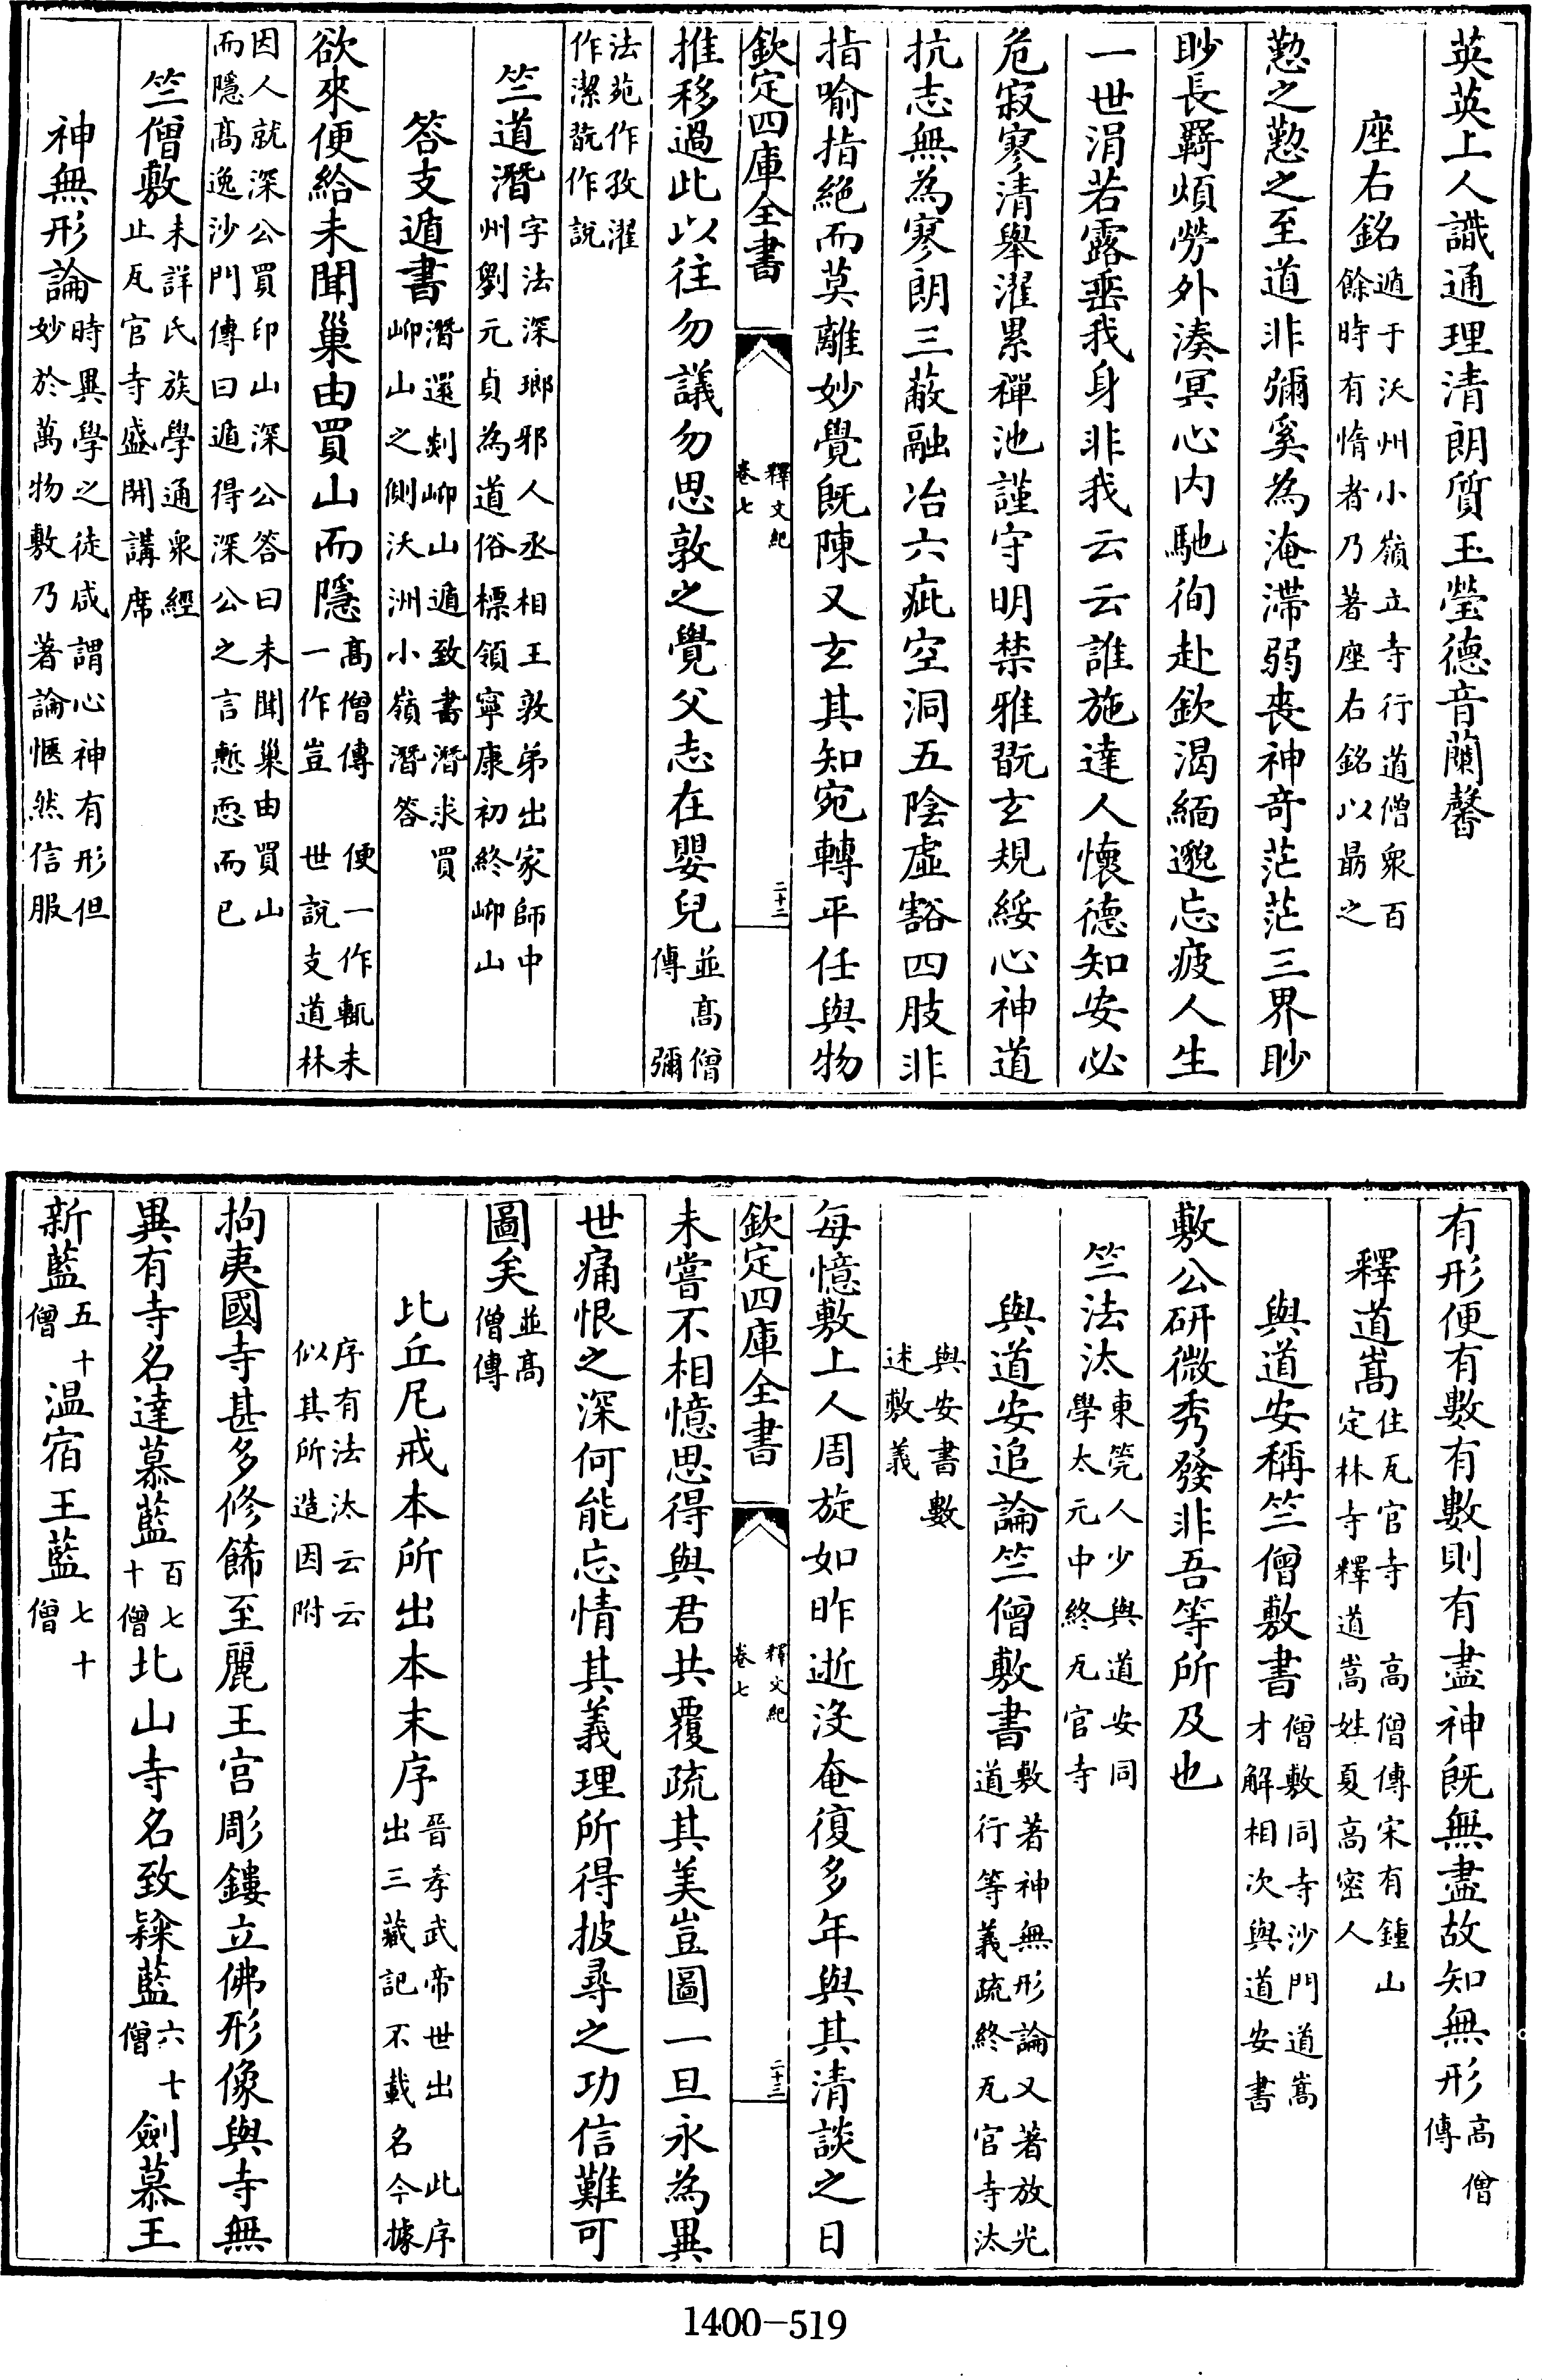 英英上人識通理清朗質玉瑩德音蘭馨
座右銘遁于沃州小嶺立寺行道僧衆百餘時有惰者乃著座右銘以勗之
懃之懃之至道非彌奚為淹滯弱喪神奇茫茫三界眇
眇長羇煩勞外湊冥心内馳徇赴欽渴緬邈忘疲人生
一世涓若露垂我身非我云云誰施達人懷德知安必
危寂寥清舉濯累禪池謹守明禁雅翫玄規綏心神道
抗志無為寥朗三蔽融冶六疵空洞五陰虛豁四肢非
指喻指絶而莫離妙覺既陳又玄其知宛轉平任與物
欽定四庫全書
釋文紀
卷七
二十二
推移過此以往勿議勿思敦之覺父志在嬰兒並高僧傳彌
法苑作孜濯作潔翫作說
竺道潛字法深瑯邪人丞相王敦弟出家師中州劉元貞為道俗標領寧康初終岇山
答支遁書潛還剡岇山遁致書潛求買岇山之側沃洲小嶺潛答
欲來便給未聞巢由買山而隱高僧傳便一作輒未一作豈世說支道林
因人就深公買印山深公答曰未聞巢由買山而隱高逸沙門傳曰遁得深公之言慙恧而已
竺僧敷未詳氏族學通衆經止瓦官寺盛開講席
神無形論時異學之徒咸謂心神有形但妙於萬物敷乃著論愜然信服
有形便有數有數則有盡神既無盡故知無形高僧傳
釋道嵩住瓦官寺高僧傳宋有鍾山定林寺釋道嵩姓夏高密人
與道安稱竺僧敷書僧敷同寺沙門道嵩才解相次與道安書
敷公研微秀發非吾等所及也
竺法汰東莞人少與道安同學太元中終瓦官寺
與道安追論竺僧敷書敷著神無形論又著放光道行等義疏終瓦官寺汰
與安書數述敷義
每憶敷上人周旋如昨逝没奄復多年與其清談之日
欽定四庫全書
釋文紀
卷七
二十三
未嘗不相憶思得與君共覆疏其美豈圖一旦永為異
世痛恨之深何能忘情其義理所得披尋之功信難可
圖矣並高僧傳
比丘尼戒本所出本末序晉孝武帝世出此序出三藏記不載名今據
序有法汰云云似其所造因附
拘夷國寺甚多修飾至麗王宮彫鏤立佛形像與寺無
異有寺名達慕藍百七十僧北山寺名致隸藍六十僧劍慕王
新藍五十僧温宿王藍七十僧
1400-519